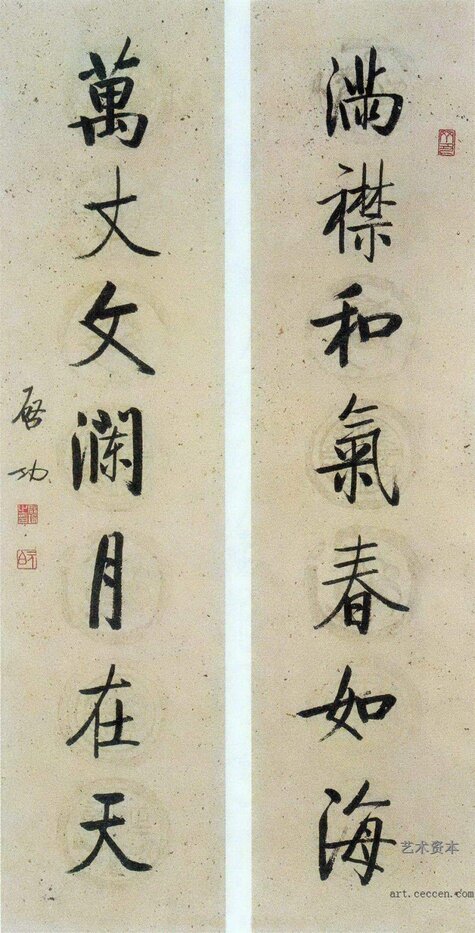 满襟和氣春如海
萬丈文澜月在天
启功
艺术资本
art.ceccen.com